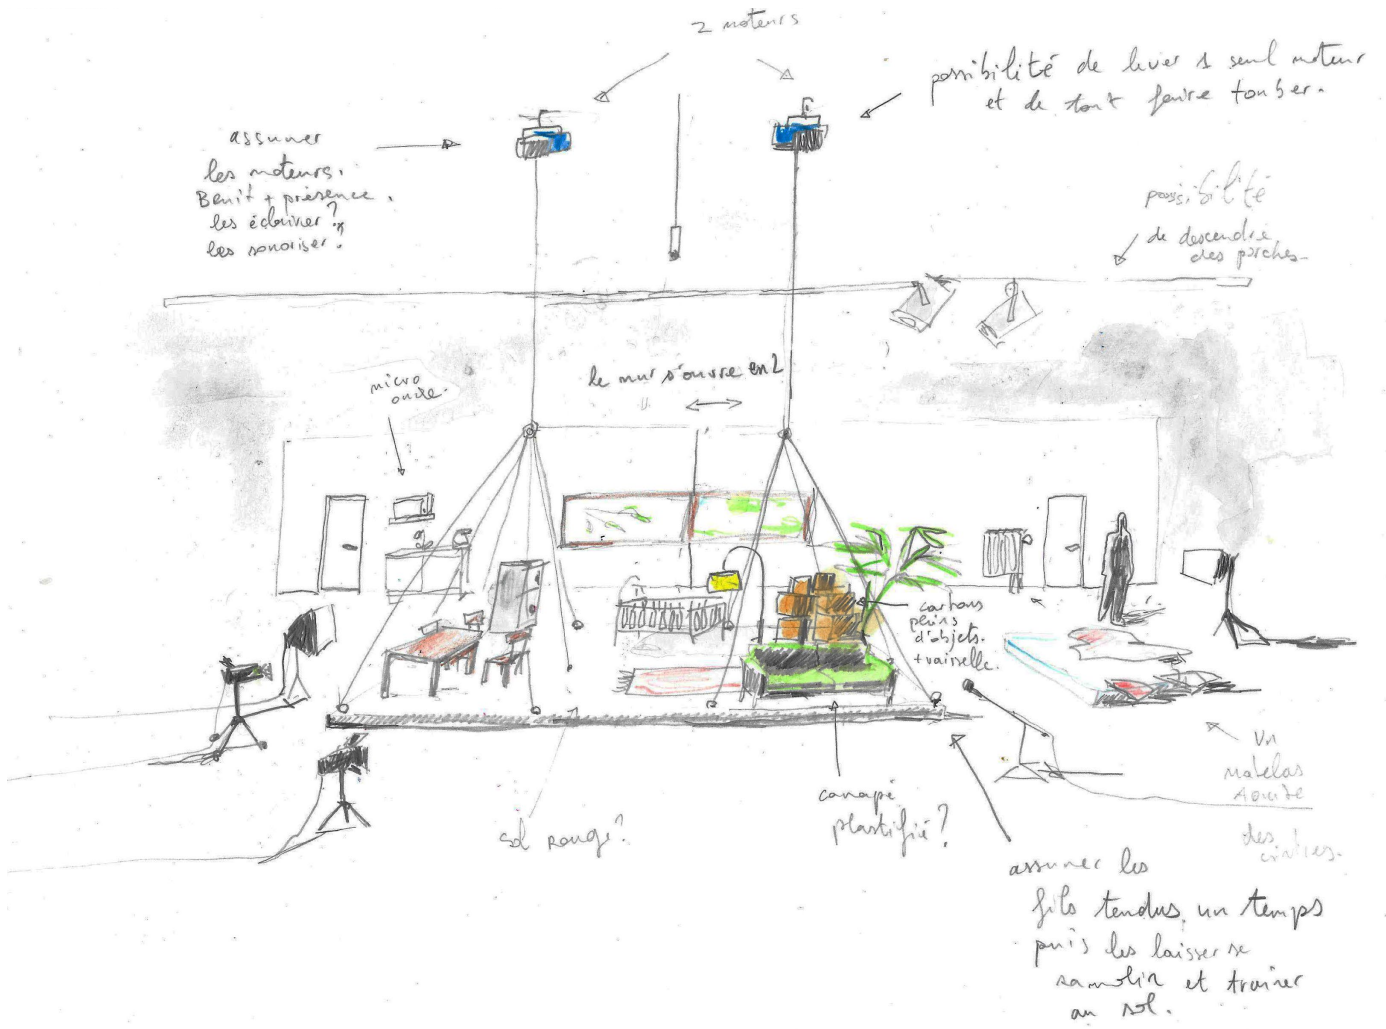 2 moteurs
possibilité de lever 1 seul moteur
et de tout faire tomber.
assumer
les moteurs.
Bruit + présence.
les éclairer?
les sonoriser?
possibilité
de descendre
des porches
le mur s'ouvre en 2
micro
onde.
cartons
pleins
d'objets.
+ vaisselle.
canapé
plastifié?
sol rouge?
Un
matelas
tombe
des
cintres.
assumer les
fils tendus un temps
puis les laisser se
ramolir et trainer
au sol.